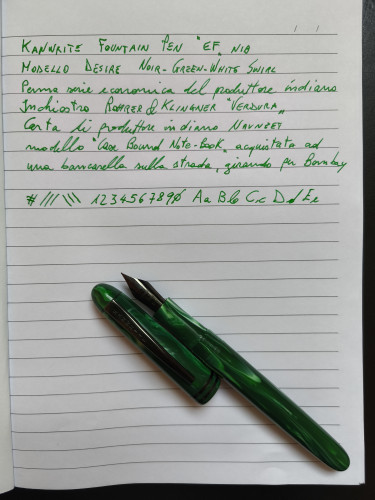 KANWRITE FOUNTAIN PEN "EF" NIB
MODELLO DESIRE NOIR-GREEN-WHITE SWIRL
Penna serie economica del produttore indiano
Inchiostro ROHRER & KLINGNER "VERDURA"
Carta di produttore indiano NAVNEET
modello "Case Bound Note-Book" acquistata ad
una bancarella sulla strada, girando per Bombay
# /// \\\ 1234567890 Aa Bb Cc Dd Ee